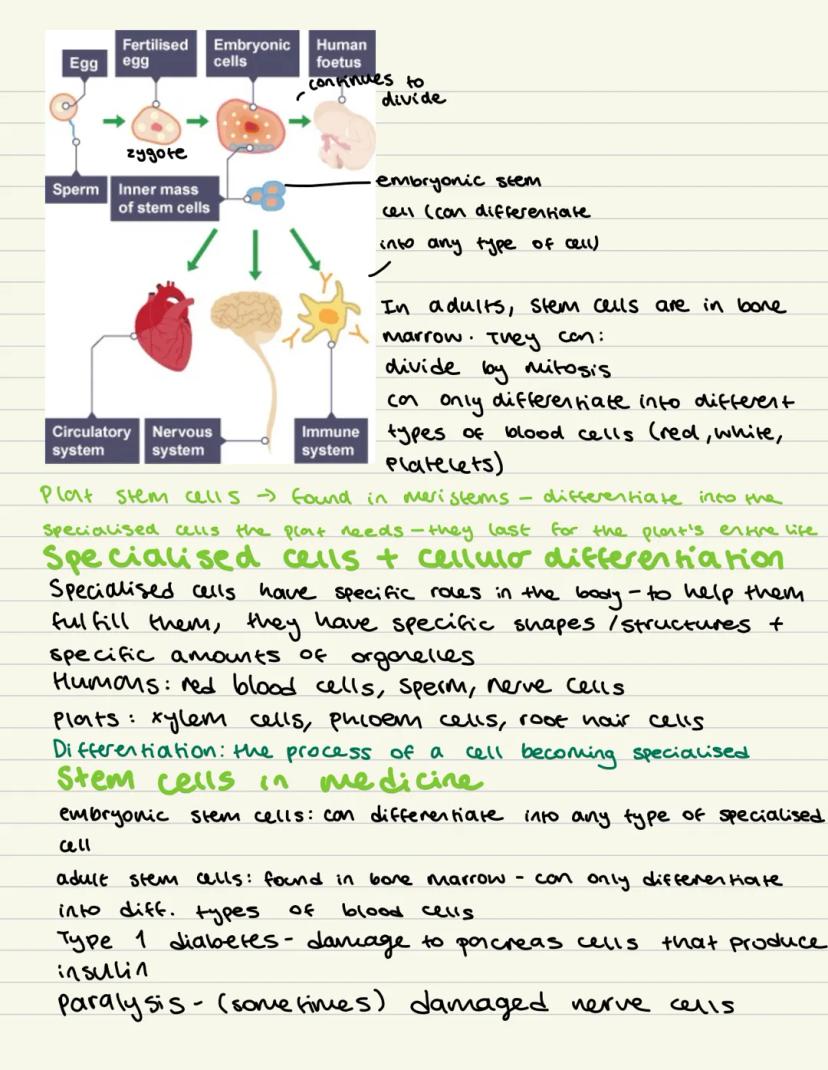 Egg
Fertilised
egg
Embryonic
cells
Human
foetus
continues to
divide
zygote
Sperm
Inner mass
of stem cells
embryonic stem
cell (can differentiate
into any type of cell)
Circulatory
system
Nervous
system
Immune
system
In adults, stem cells are in bone
marrow. They can:
divide by mitosis
can only differentiate into different
types of blood cells (red, white,
platelets)
Plant stem cells → found in meristems - differentiate into the
specialised cells the plant needs - they last for the plant's entire life
Specialised cells + cellular differentiation
Specialised cells have specific roles in the body - to help them
fulfill them, they have specific shapes / structures +
specific amounts of organelles
Humans: red blood cells, sperm, nerve cells
Plants: xylem cells, phloem cells, root hair cells
Differentiation: the process of a cell becoming specialised
Stem cells in medicine
embryonic stem cells: can differentiate into any type of specialised
cell
adult stem cells: found in bone marrow - can only differentiate
into diff. types of blood cells
Type 1 diabetes - damage to pancreas cells that produce
insulin
paralysis - (sometimes) damaged nerve cells